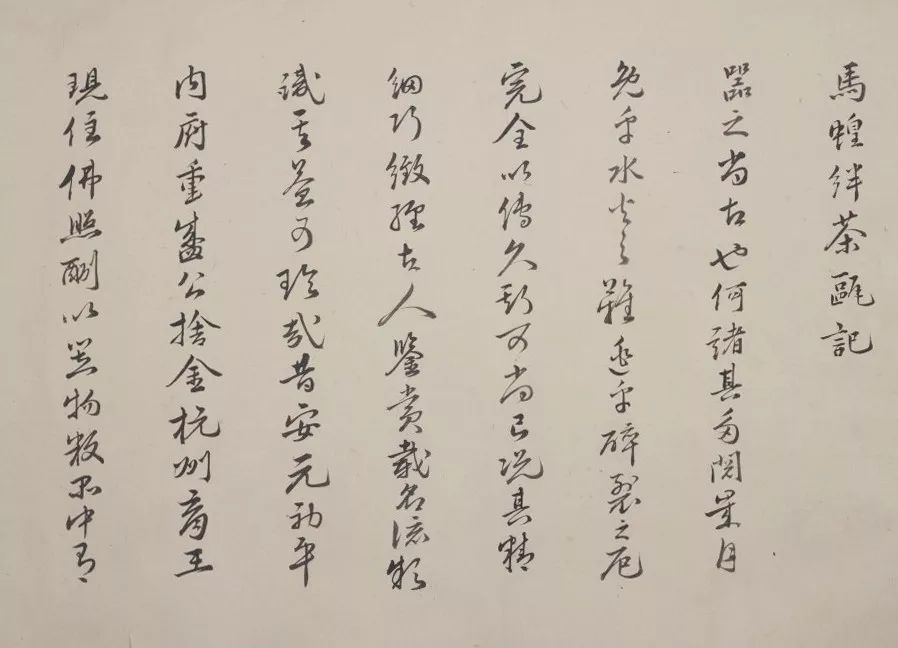 馬蝗絆茶甌記
器之尚古也何諸其多閱歲月
免乎水火之難逃乎碎裂之厄
完全以傳久斯可尚已況其精
細巧緻經古人鑒賞載名流
識者益可珍哉昔安元初平
内府重盛公捨金杭州育王
現住佛照酬以器物數品中有